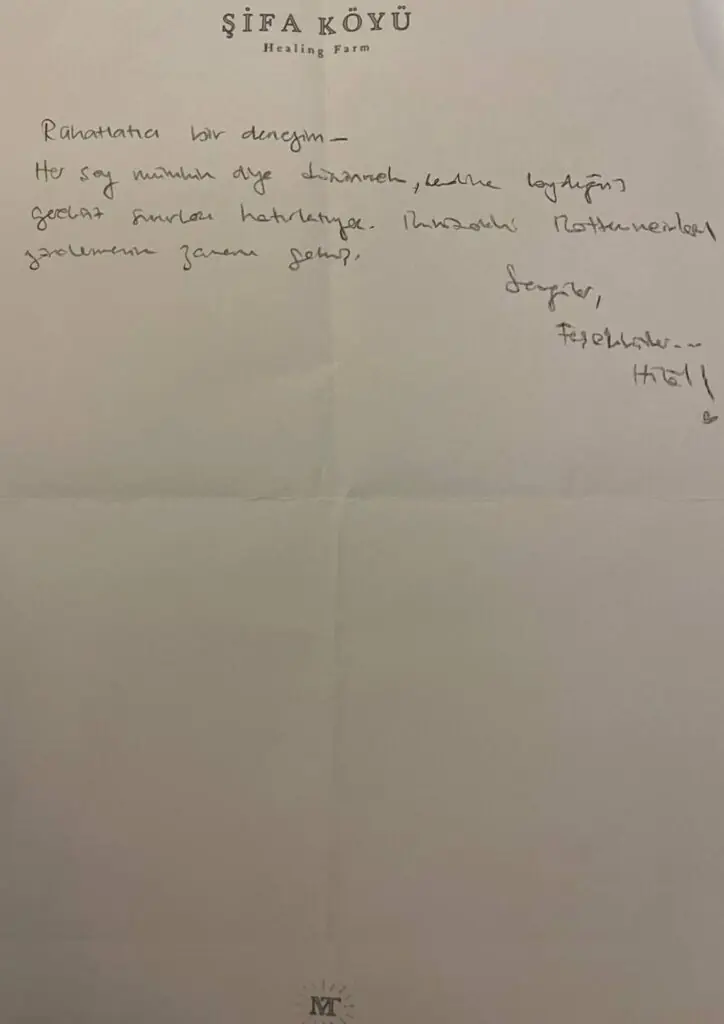 ŞİFA KÖYÜ
Healing Farm
Rahatlatıcı bir deneyim –
Her şey mümkün diye düşünmek, kendine koyduğun
sınırları hatırlatıyor.
zamanı gelmiş.
Sevgiler,
Teşekkürler...
Hilal
MT